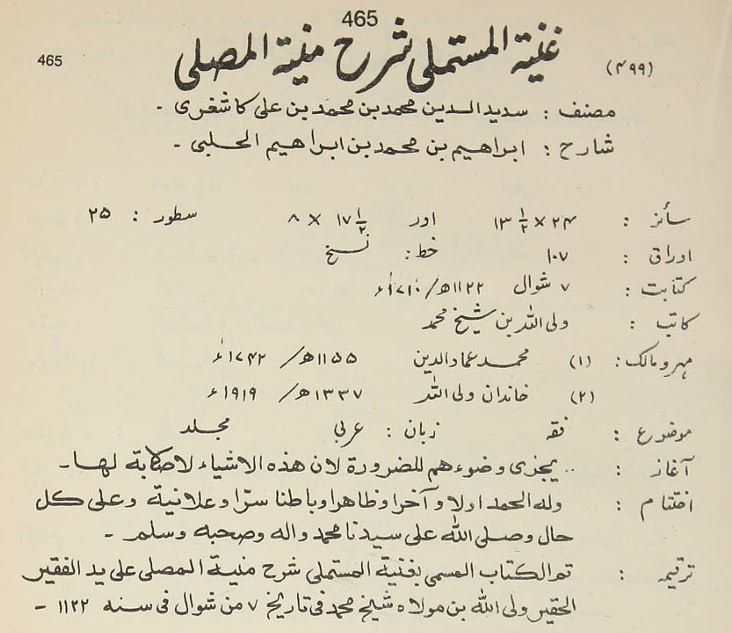 465
غنية المستملى شرح منية المصلى (۴۹۹) 465
مصنف : سديد الدين محمد بن محمد بن على كاشغرى ۔
شارح : ابراهيم بن محمد بن ابراهيم الحلبى ۔
سائز : ۲۴ × ۱۳ ۱/۲ اور ۱۷ ۱/۲ × ۸ سطور : ۲۵
اوراق : ۱۰۷ خط : نسخ
کتابت : ۷ شوال ۱۱۲۲ھ/۱۷۱۰ء
کاتب : ولی اللہ بن شیخ محمد
مہر و مالک : (۱) محمد عماد الدین ۱۱۵۵ھ/ ۱۷۴۲ء
(۲) خاندان ولی اللہ ۱۳۳۷ھ/ ۱۹۱۹ء
موضوع : فقہ زبان : عربی مجلد
آغاز : .. يجزى وضوءهم للضرورة لان هذه الاشياء لاصابة لها ۔
اختتام : وله الحمد اولا و آخرا و ظاهرا وباطنا سرّا و علانية وعلى كل
حال وصلى الله على سيدنا محمد واله وصحبه وسلم ۔
ترقیمہ : تم الكتاب المسمى بغنية المستملى شرح منية المصلى على يد الفقير
الحقير ولى الله بن مولاه شيخ محمد فى تاريخ ۷ من شوال فى سنه ۱۱۲۲ ۔